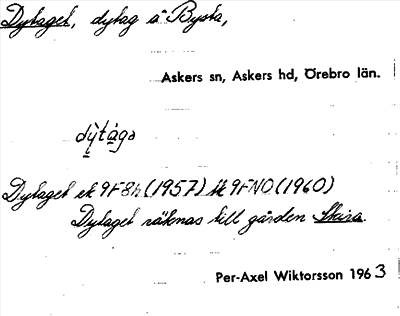 Dytaget, dytag å Bysta,
Askers sn, Askers hd, Örebro län.
dỳtága
Dytaget ek 9F8h (1957) tk 9FNO (1960)
Dytaget räknas till gården Skira.
Per-Axel Wiktorsson 1963